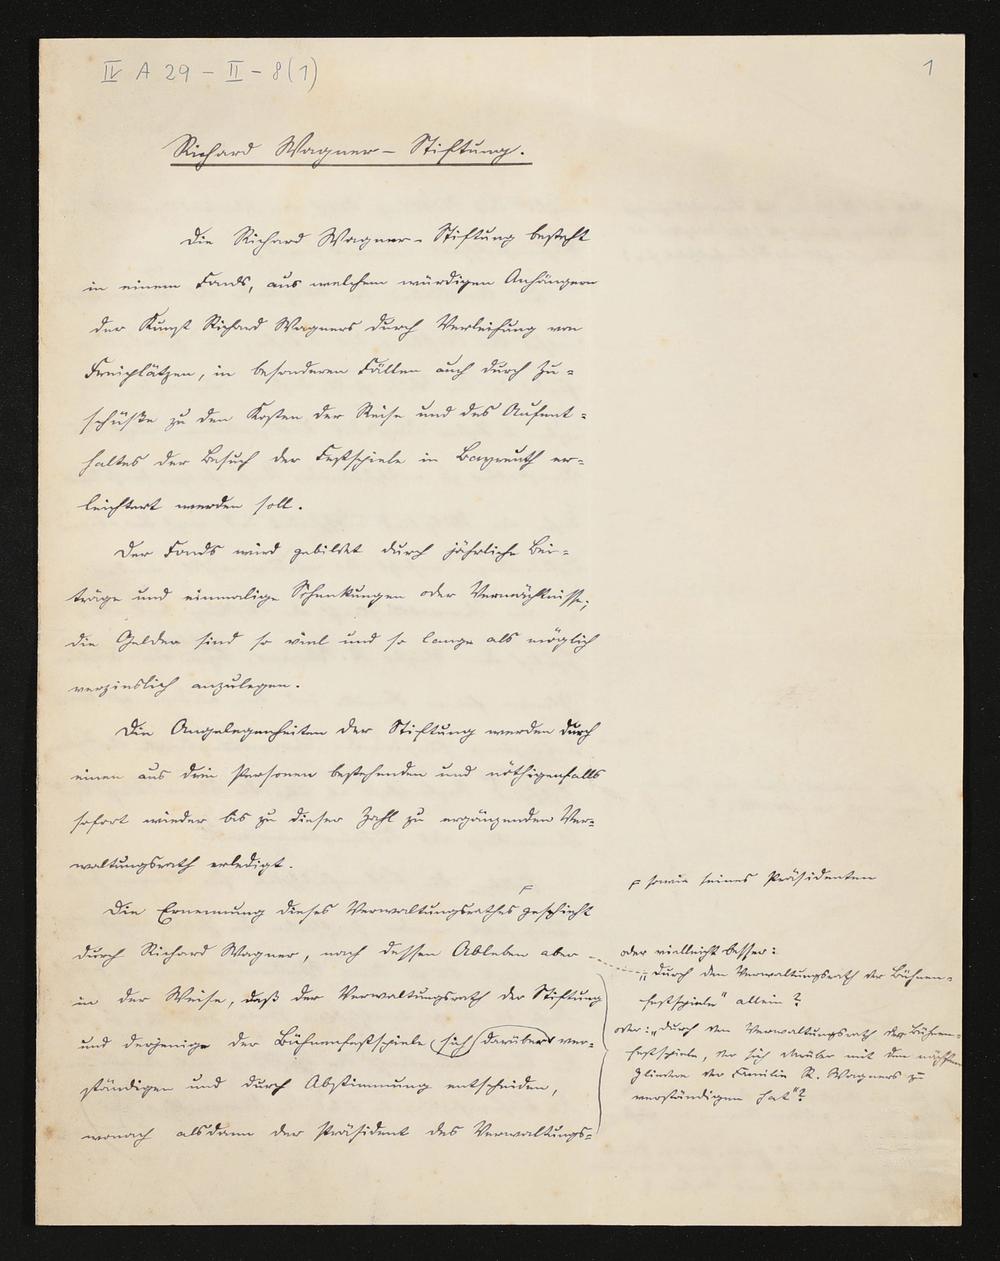 IV A 29 – II – 8(1)
1
Richard Wagner – Stiftung.
Die Richard Wagner-Stiftung besteht
in einem Fonds, aus welchem würdigen Anhängern
der Kunst Richard Wagners durch Verleihung von
Freiplätzen, in besonderen Fällen auch durch Zu=
schüße zu den Kosten der Reise und des Aufent=
haltes der Besuch der Festspiele in Bayreuth er=
leichtert werden soll.
Der Fonds wird gebildet durch jährliche Bei=
träge und einmalige Schenkungen oder Vermächtnisse;
die Gelder sind so viel und so lange als möglich
verzinslich anzulegen.
Die Angelegenheiten der Stiftung werden durch
einen aus drei Personen bestehenden und nöthigenfalls
sofort wieder bis zu dieser Zahl zu ergänzenden Ver=
waltungsrath erledigt.
Die Ernennung dieses Verwaltungsrathes ┌ geschieht
┌ sowie seines Präsidenten
durch Richard Wagner, nach dessen Ableben aber
in der Weise, daß der Verwaltungsrath der Stiftung
und derjenige der Bühnenfestspiele sich darüber ver=
ständigen und durch Abstimmung entscheiden,
wonach alsdann der Präsident des Verwaltungs=
oder vielleicht besser:
„durch den Verwaltungsrath der Bühnen=
festspiele" allein?
oder: „durch den Verwaltungsrath der Bühnen=
festspiele, der sich darüber mit den nächsten
Gliedern der Familie R. Wagners zu
verständigen hat"?